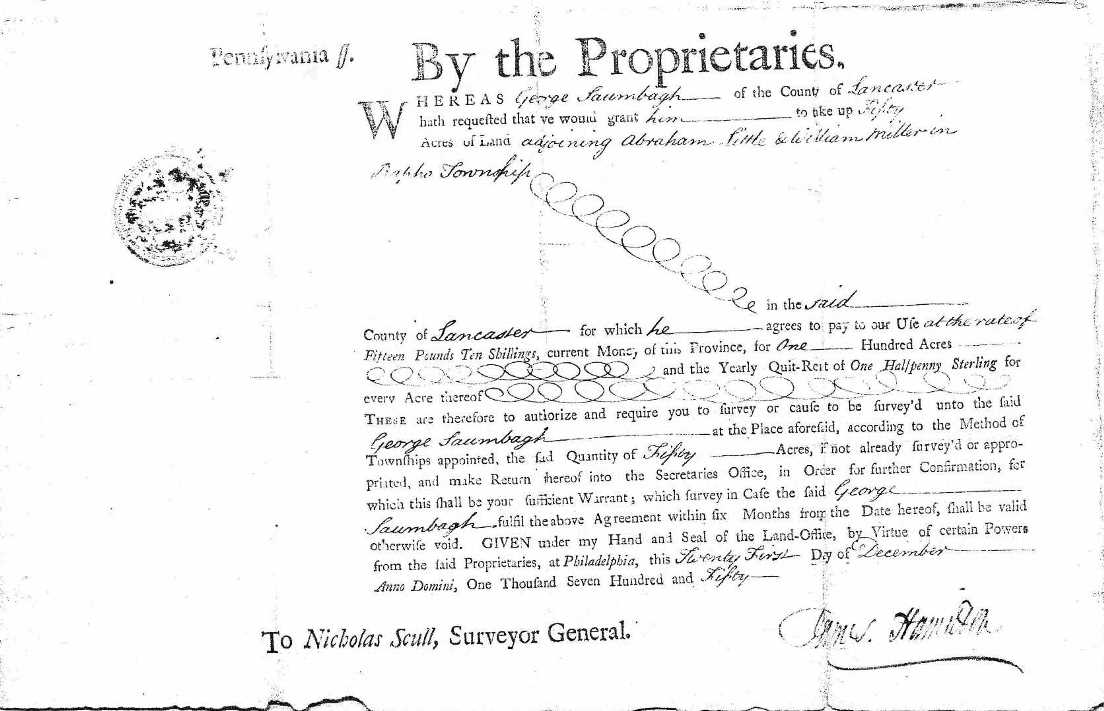 Pennsylvania ss.
By the Proprietaries.
WHEREAS George Saumbagh of the County of Lancaster
hath requested that we would grant him to take up Fifty
Acres of Land adjoining Abraham Little & William Miller in
Rapho Township
in the said
County of Lancaster for which he agrees to pay to our Use at the rate of
Fifteen Pounds Ten Shillings, current Money of this Province, for One Hundred Acres
and the Yearly Quit-Rent of One Halfpenny Sterling for
every Acre thereof
THESE are therefore to authorize and require you to survey or cause to be survey'd unto the said
George Saumbagh at the Place aforesaid, according to the Method of
Townships appointed, the said Quantity of Fifty Acres, if not already survey'd or appro-
priated, and make Return thereof into the Secretaries Office, in Order for further Confirmation, for
which this shall be your sufficient Warrant; which survey in Case the said George
Saumbagh fulfil the above Agreement within six Months from the Date hereof, shall be valid
otherwise void. GIVEN under my Hand and Seal of the Land-Office, by Virtue of certain Powers
from the said Proprietaries, at Philadelphia, this Twenty First Day of December
Anno Domini, One Thousand Seven Hundred and Fifty
To Nicholas Scull, Surveyor General.
James Hamilton